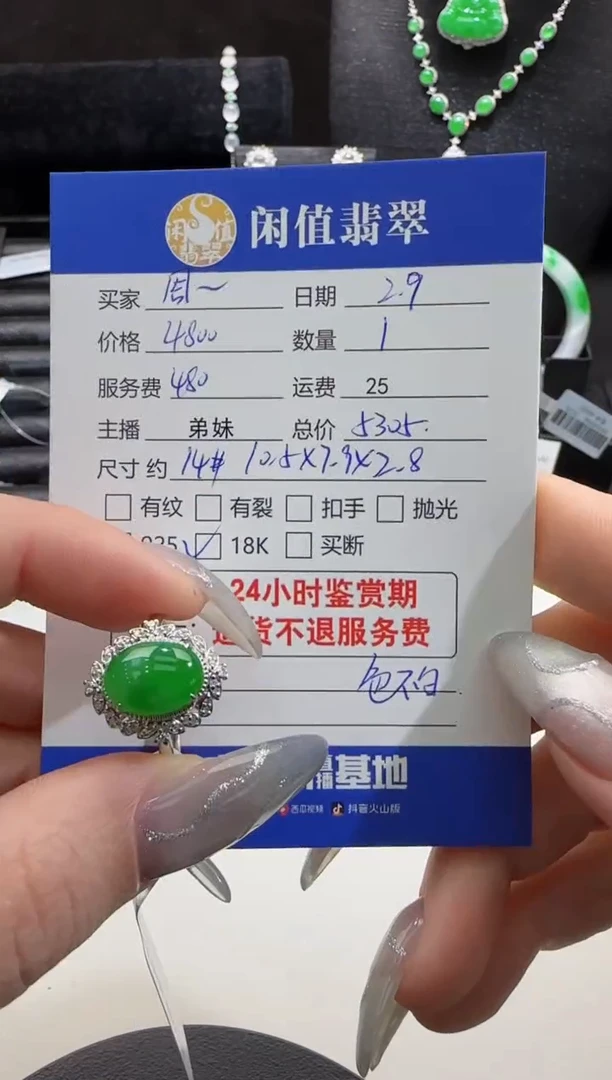 闲值翡翠
闲值
翡翠
买家 周一 日期 2.9
价格 4800 数量 1
服务费 480 运费 25
主播 弟妹 总价 5305.
尺寸 约 14# 10.5X7.9X2.8
有纹 有裂 扣手 抛光
925 18K 买断
24小时鉴赏期
退货不退服务费
包不白
播基地
西瓜视频 抖音火山版